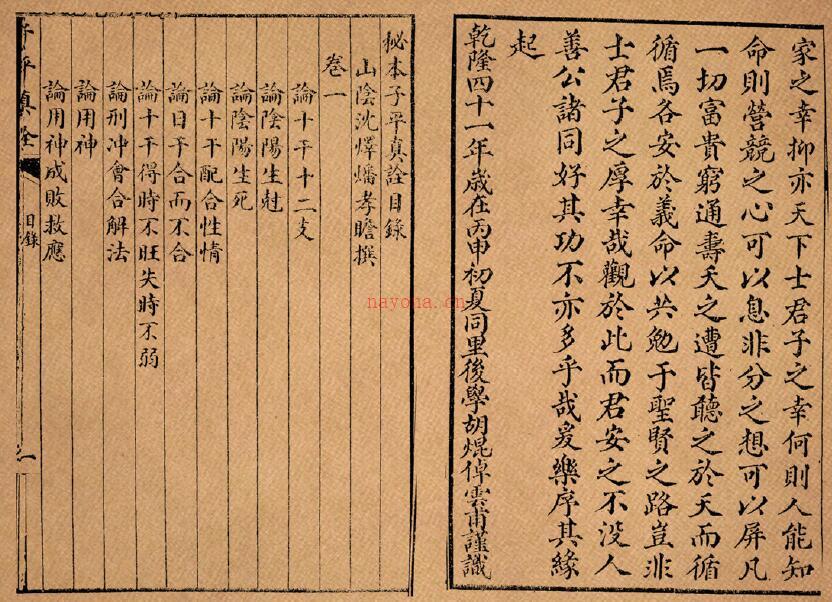 家之幸抑亦天下士君子之幸何則人能知
命則營競之心可以息非分之想可以屏凡
一切富貴窮通壽夭之遭皆聽之於天而循
循焉各安於義命以共勉于聖賢之路豈非
士君子之厚幸哉觀於此而君安之不没人
善公諸同好其功不亦多乎哉爰樂序其緣
起
乾隆四十一年歲在丙申初夏同里後學胡焜倬雲甫謹識
秘本子平真詮目錄
山陰沈燡燔孝瞻撰
卷一
論十干十二支
論陰陽生尅
論陰陽生死
論十干配合性情
論日干合而不合
論十干得時不旺失時不弱
論刑冲會合解法
論用神
論用神成敗救應
子平真詮
目錄
一
nayona.cn